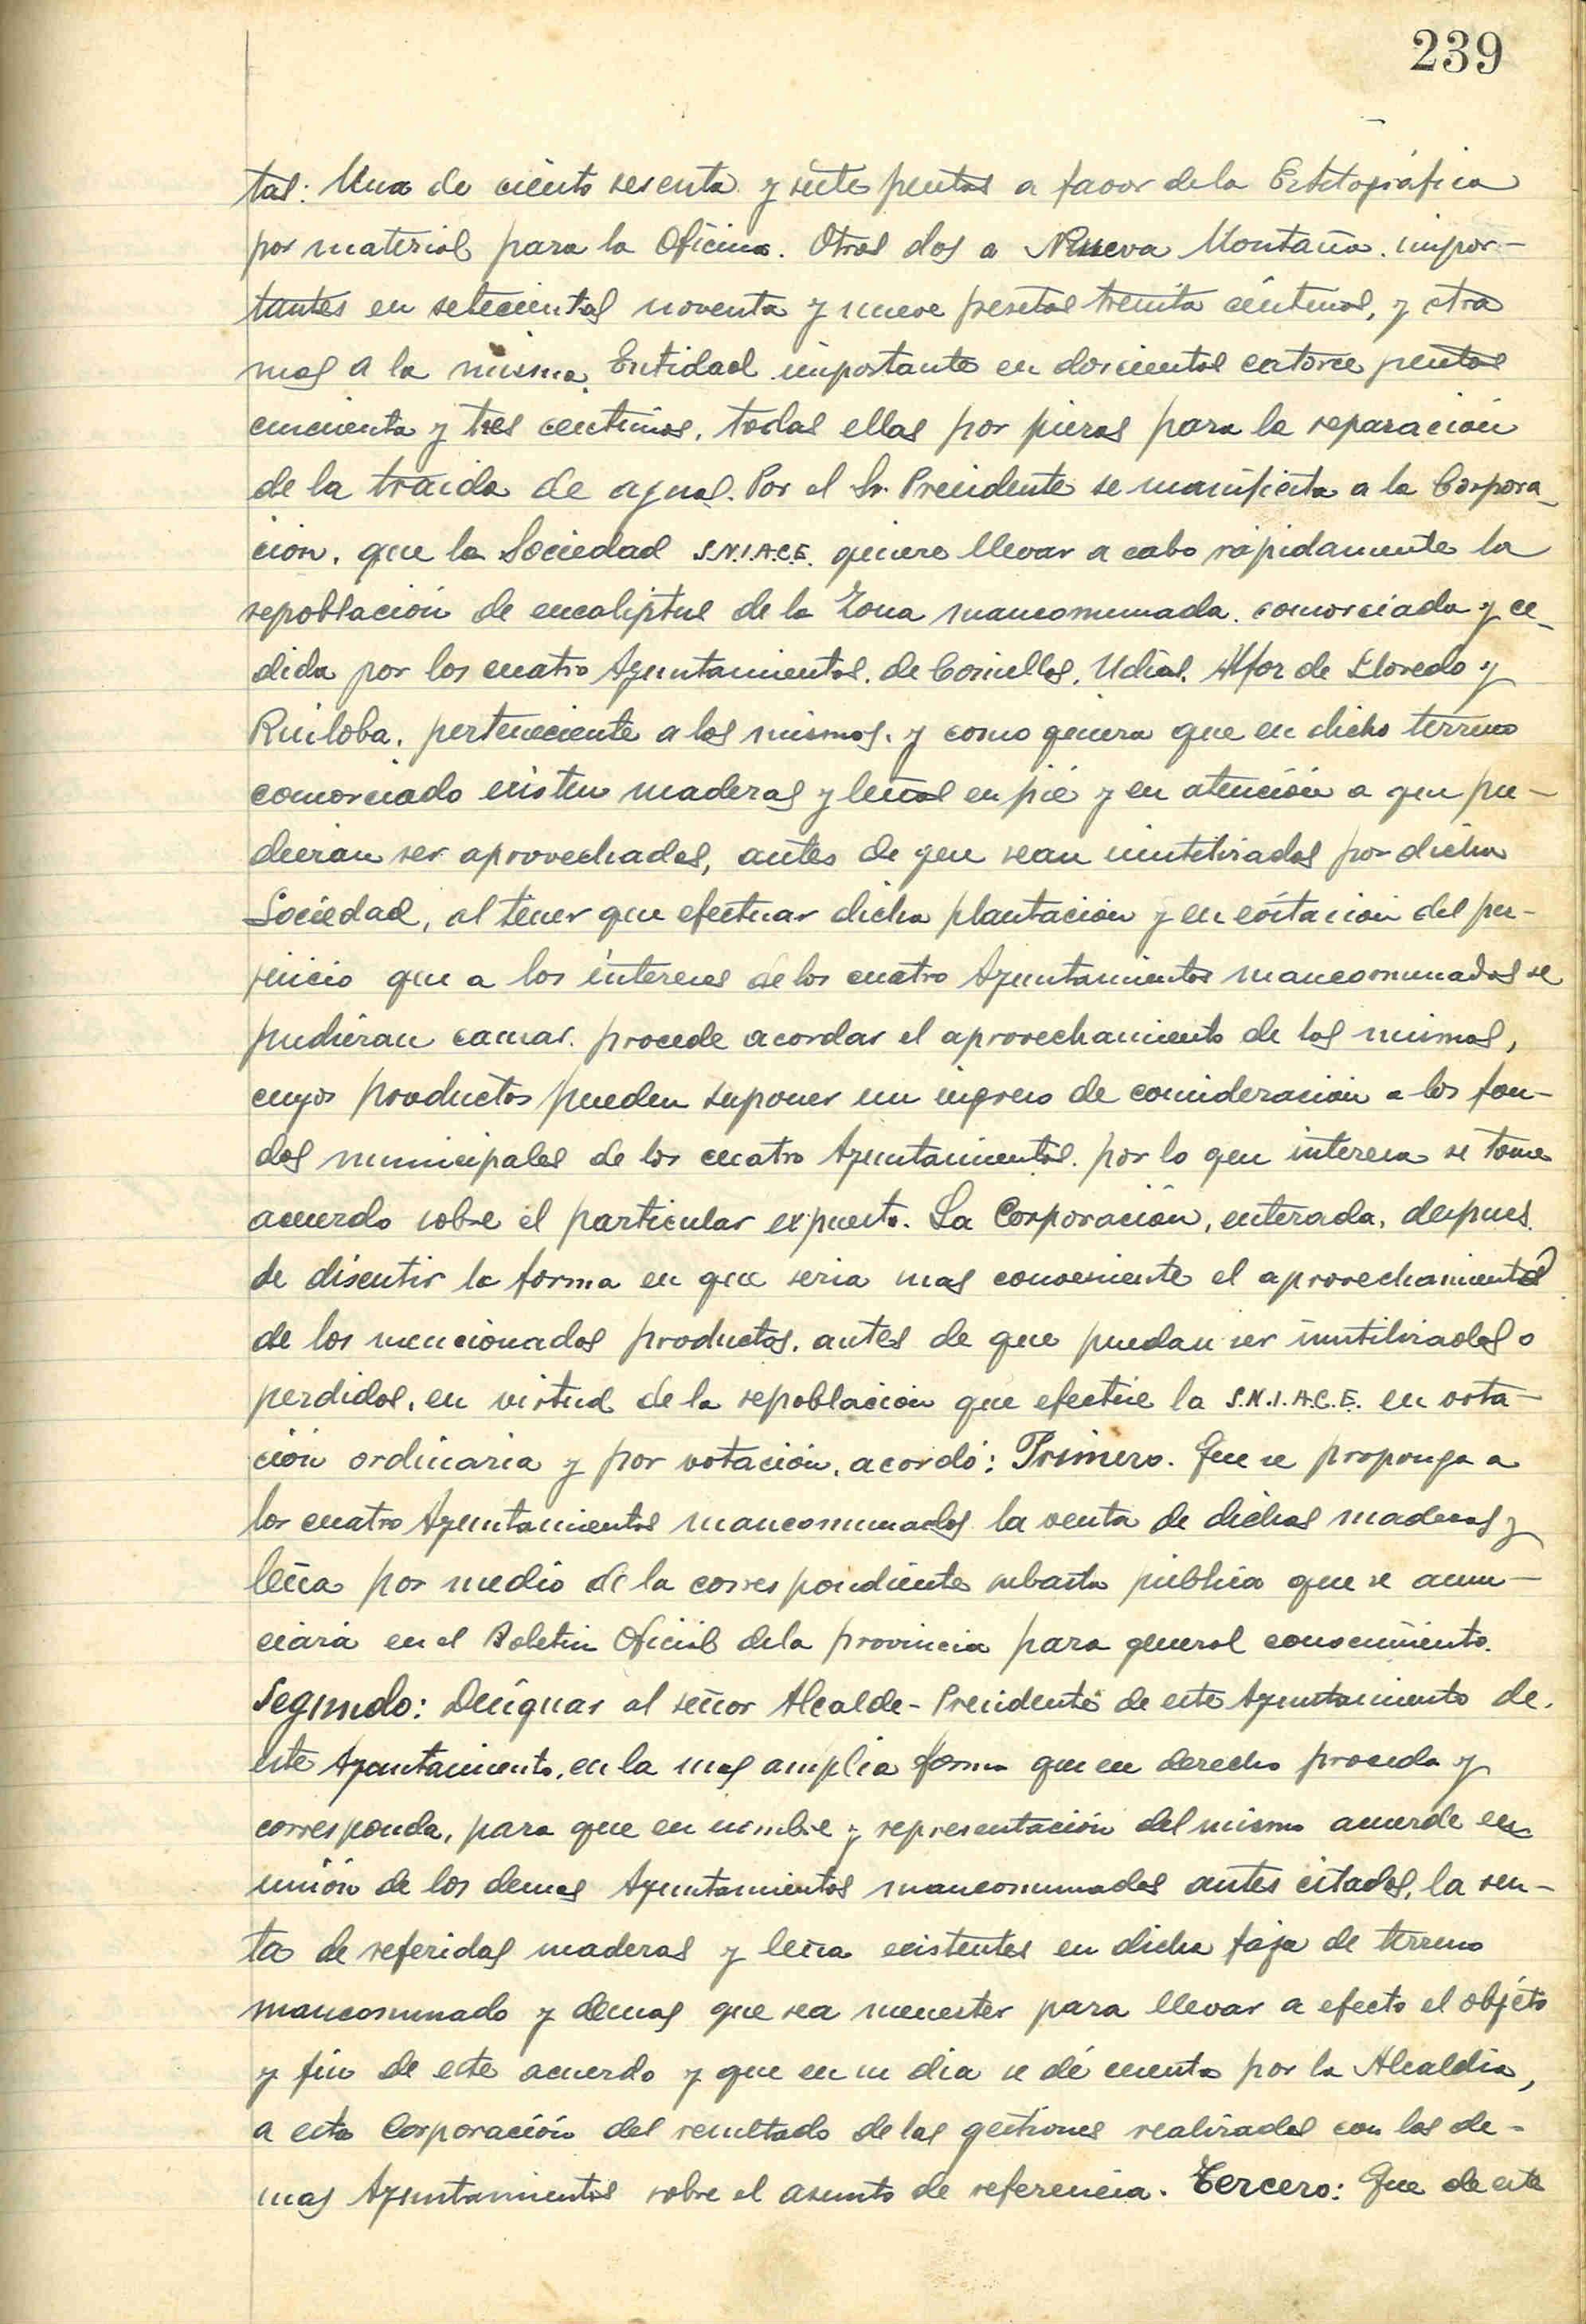 239
tas: Una de ciento sesenta y siete pesetas a favor de la
por material para la Oficina. Otras dos a Nueva Montaña. impor-
tantes en setecientas noventa y nueve pesetas treinta céntimos, y otra
mas a la misma Entidad importante en doscientas catorce pesetas
cincuenta y tres céntimos, todas ellas por piezas para la reparación
de la traida de aguas. Por el Sr. Presidente se manifiesta a la Corpora-
ción, que la Sociedad S.N.I.A.C.E. quiere llevar a cabo rápidamente la
repoblación de eucaliptus de la Zona mancomunada. consorciada y ce-
dida por los cuatro Ayuntamientos. de Comillas, Udias. Alfoz de Lloredo y
Ruiloba, perteneciente a los mismos, y como quiera que en dicho terreno
consorciado existen maderas y leñas en pié y en atención a que pu-
dieran ser aprovechadas, antes de que sean inutilizadas por dicha
Sociedad, al tener que efectuar dicha plantación y en evitación del per-
juicio que a los intereses de los cuatro Ayuntamientos mancomunados se
pudieran causar. procede acordar el aprovechamiento de las mismas,
cuyos productos pueden suponer un ingreso de consideración a los fon-
dos municipales de los cuatro Ayuntamientos. por lo que interesa se tome
acuerdo sobre el particular expuesto. La Corporación, enterada, despues
de discutir la forma en que seria mas conveniente el aprovechamiento
de los mencionados productos, antes de que puedan ser inutilizados o
perdidos, en virtud de la repoblación que efectúe la S.N.I.A.C.E. en vota-
ción ordinaria y por votación, acordó: Primero. Que se proponga a
los cuatro Ayuntamientos mancomunados la venta de dichas maderas y
leña por medio de la correspondiente subasta pública que se anun-
ciará en el Boletin Oficial de la provincia para general conocimiento.
Segundo: Designar al señor Alcalde-Presidente de este Ayuntamiento de
este Ayuntamiento, en la mas amplia forma que en derecho proceda y
corresponda, para que en nombre y representación del mismo acuerde en
unión de los demas Ayuntamientos mancomunados antes citados, la ven-
ta de referidas maderas y leña existentes en dicha faja de terreno
mancomunado y demas que sea menester para llevar a efecto el objeto
y fin de este acuerdo y que en su dia se dé cuenta por la Alcaldia,
a esta Corporación del resultado de las gestiones realizadas con los de-
mas Ayuntamientos sobre el asunto de referencia. Tercero: Que de este